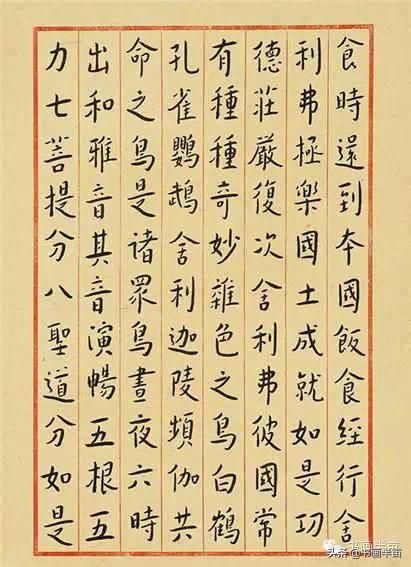 食時還到本國飯食經行舍
利弗極樂國土成就如是功
德莊嚴復次舍利弗彼國常
有種種奇妙雜色之鳥白鶴
孔雀鸚鵡舍利迦陵頻伽共
命之鳥是諸眾鳥晝夜六時
出和雅音其音演暢五根五
力七菩提分八聖道分如是
书画半亩
头条 @书画半亩